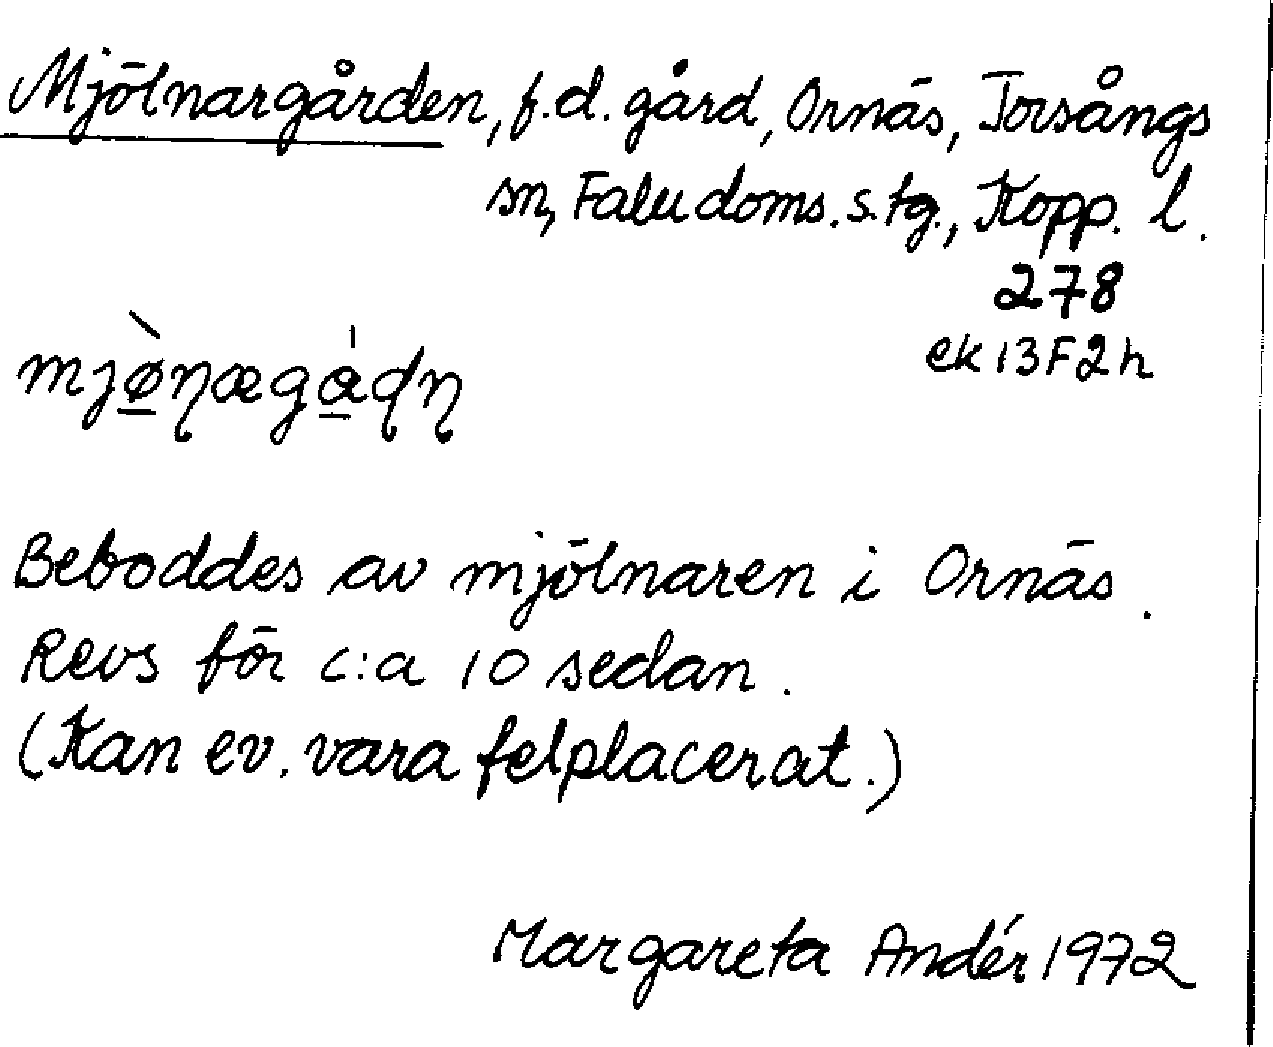 Mjölnargården, f.d. gård, Ornäs, Torsångs
sn, Falu doms.s.tg., Kopp. l.
278
ek 13F2h
mjø̀ɳægǻɖɳ
Beboddes av mjölnaren i Ornäs.
Revs för c:a 10 sedan.
(Kan ev. vara felplacerat.)
Margareta Andér 1972